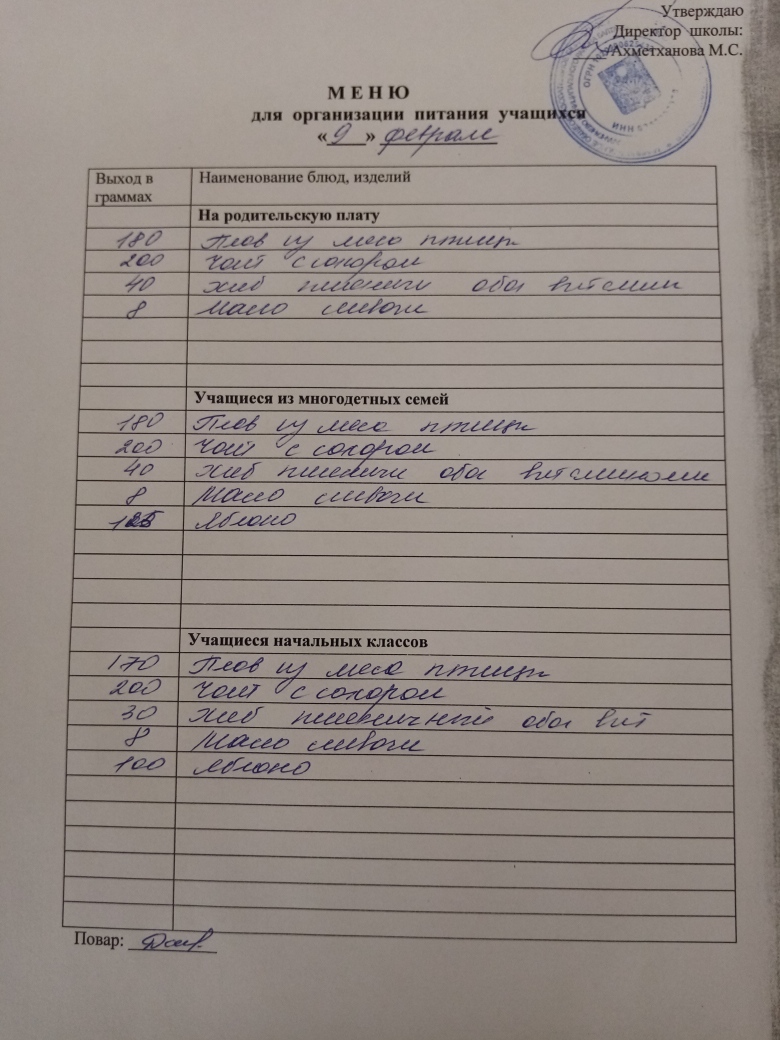 Утверждаю
Директор школы:
Ахметханова М.С.
ОГРН
ИНН
МЕНЮ
для организации питания учащихся
«9» февраля
Выход в граммах Наименование блюд, изделий
На родительскую плату
180 Плов из мяса птицы
200 Чай с сахаром
40 Хлеб пшенич обог витамин
8 Масло сливочн
Учащиеся из многодетных семей
180 Плов из мяса птицы
200 Чай с сахаром
40 Хлеб пшенич обог витаминами
8 Масло сливочн
125 Яблоко
Учащиеся начальных классов
170 Плов из мяса птицы
200 Чай с сахаром
30 Хлеб пшеничный обог вит
8 Масло сливочн
100 Яблоко
Повар: